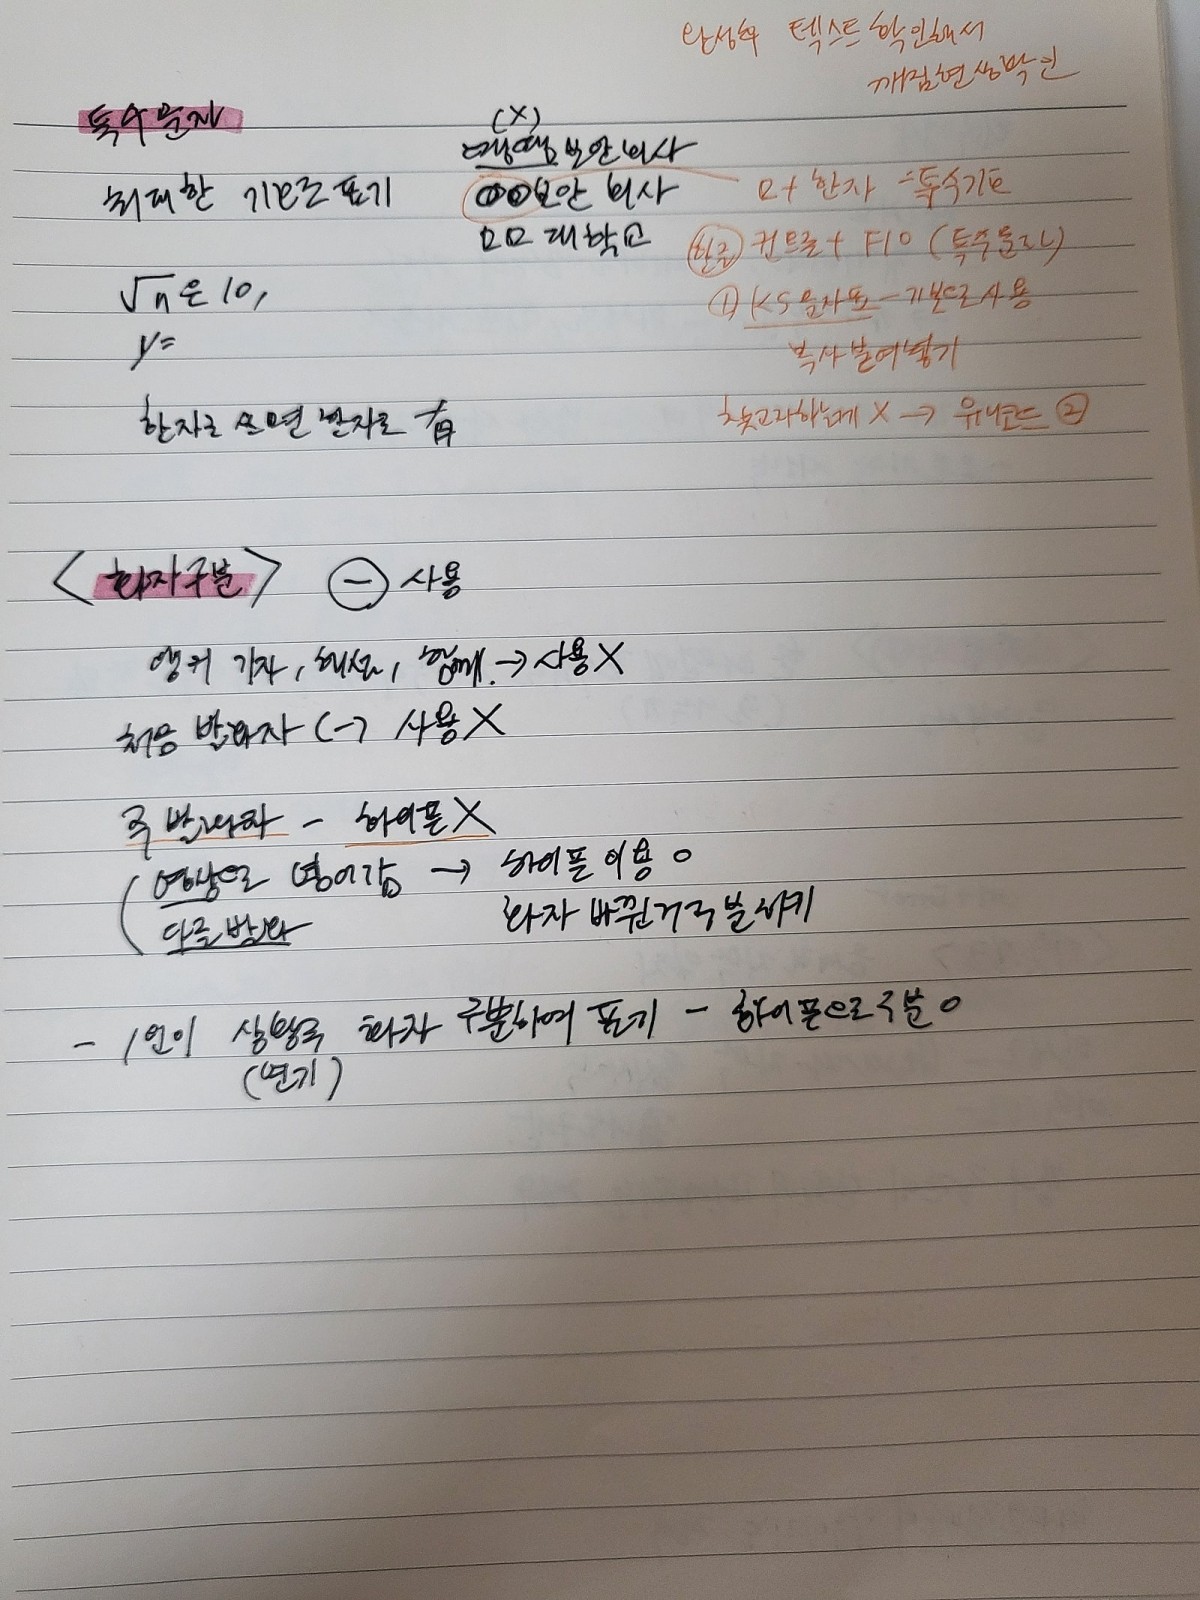 완성후 텍스트 확인해서
깨짐현상 확인
특수문자
최대한 기호로 표기
(X)
땡땡 보안회사
○○보안 회사
ㅁㅁ 대학교
ㅁ+ 한자 =특수기호
한글 컨트롤 + F10 (특수문자)
① KS문자표 - 기본으로 사용
복사 붙여넣기
찾고자하는게 X → 유니코드 ②
√n은 10,
y=
한자로 쓰면 한자로
<화자구분> - 사용
앵커 기자, 해설, 함께 → 사용X
처음 발화자 (-) 사용X
주 발화자 - 하이픈X
영상으로 넘어감 → 하이픈 이용 o
다른 발화
화자 바뀐거 구분하기
- 1인이 상황극 화자 구분하여 표기 - 하이픈으로 구분 o
(연기)